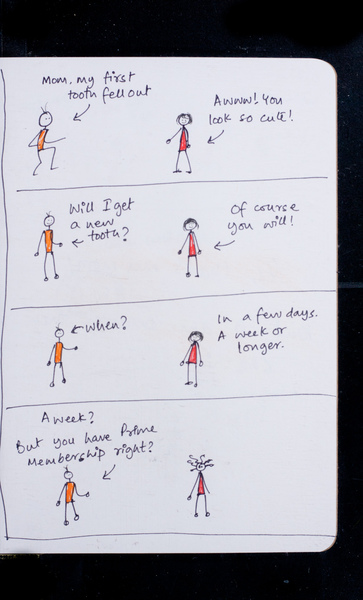 Mom, my first
tooth fell out
Awww! You
look so cute!
Will I get
a new
tooth?
Of course
you will!
When?
In a few days.
A week or
longer.
A week?
But you have Prime
Membership right?